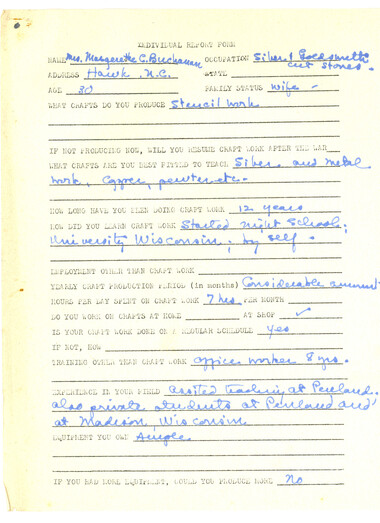 INDIVIDUAL REPORT FORM
NAME Mrs. Margarette C. Buchanan OCCUPATION Silver & Goldsmith
cut stones.
ADDRESS Hawk, N.C. STATE
AGE 30 FAMILY STATUS Wife -
WHAT CRAFTS DO YOU PRODUCE Stencil Work
IF NOT PRODUCING NOW, WILL YOU RESUME CRAFT WORK AFTER THE WAR
WHAT CRAFTS ARE YOU BEST FITTED TO TEACH Silver and metal
work, Copper, pewter etc.
HOW LONG HAVE YOU BEEN DOING CRAFT WORK 12 years
HOW DID YOU LEARN CRAFT WORK Started night Schools,
University Wisconsin, by self.
EMPLOYMENT OTHER THAN CRAFT WORK
YEARLY CRAFT PRODUCTION PERIOD (in months) Considerable amount
HOURS PER DAY SPENT ON CRAFT WORK 7 hrs PER MONTH
DO YOU WORK ON CRAFTS AT HOME AT SHOP ✓
IS YOUR CRAFT WORK DONE ON A REGULAR SCHEDULE yes
IF NOT, HOW
TRAINING OTHER THAN CRAFT WORK office worker 8 yrs.
EXPERIENCE IN YOUR FIELD assited teaching at Penland.
also private students at Penland and
at Madison, Wisconsin
EQUIPMENT YOU OWN Ample
IF YOU HAD MORE EQUIPMENT, WOULD YOU PRODUCE MORE No